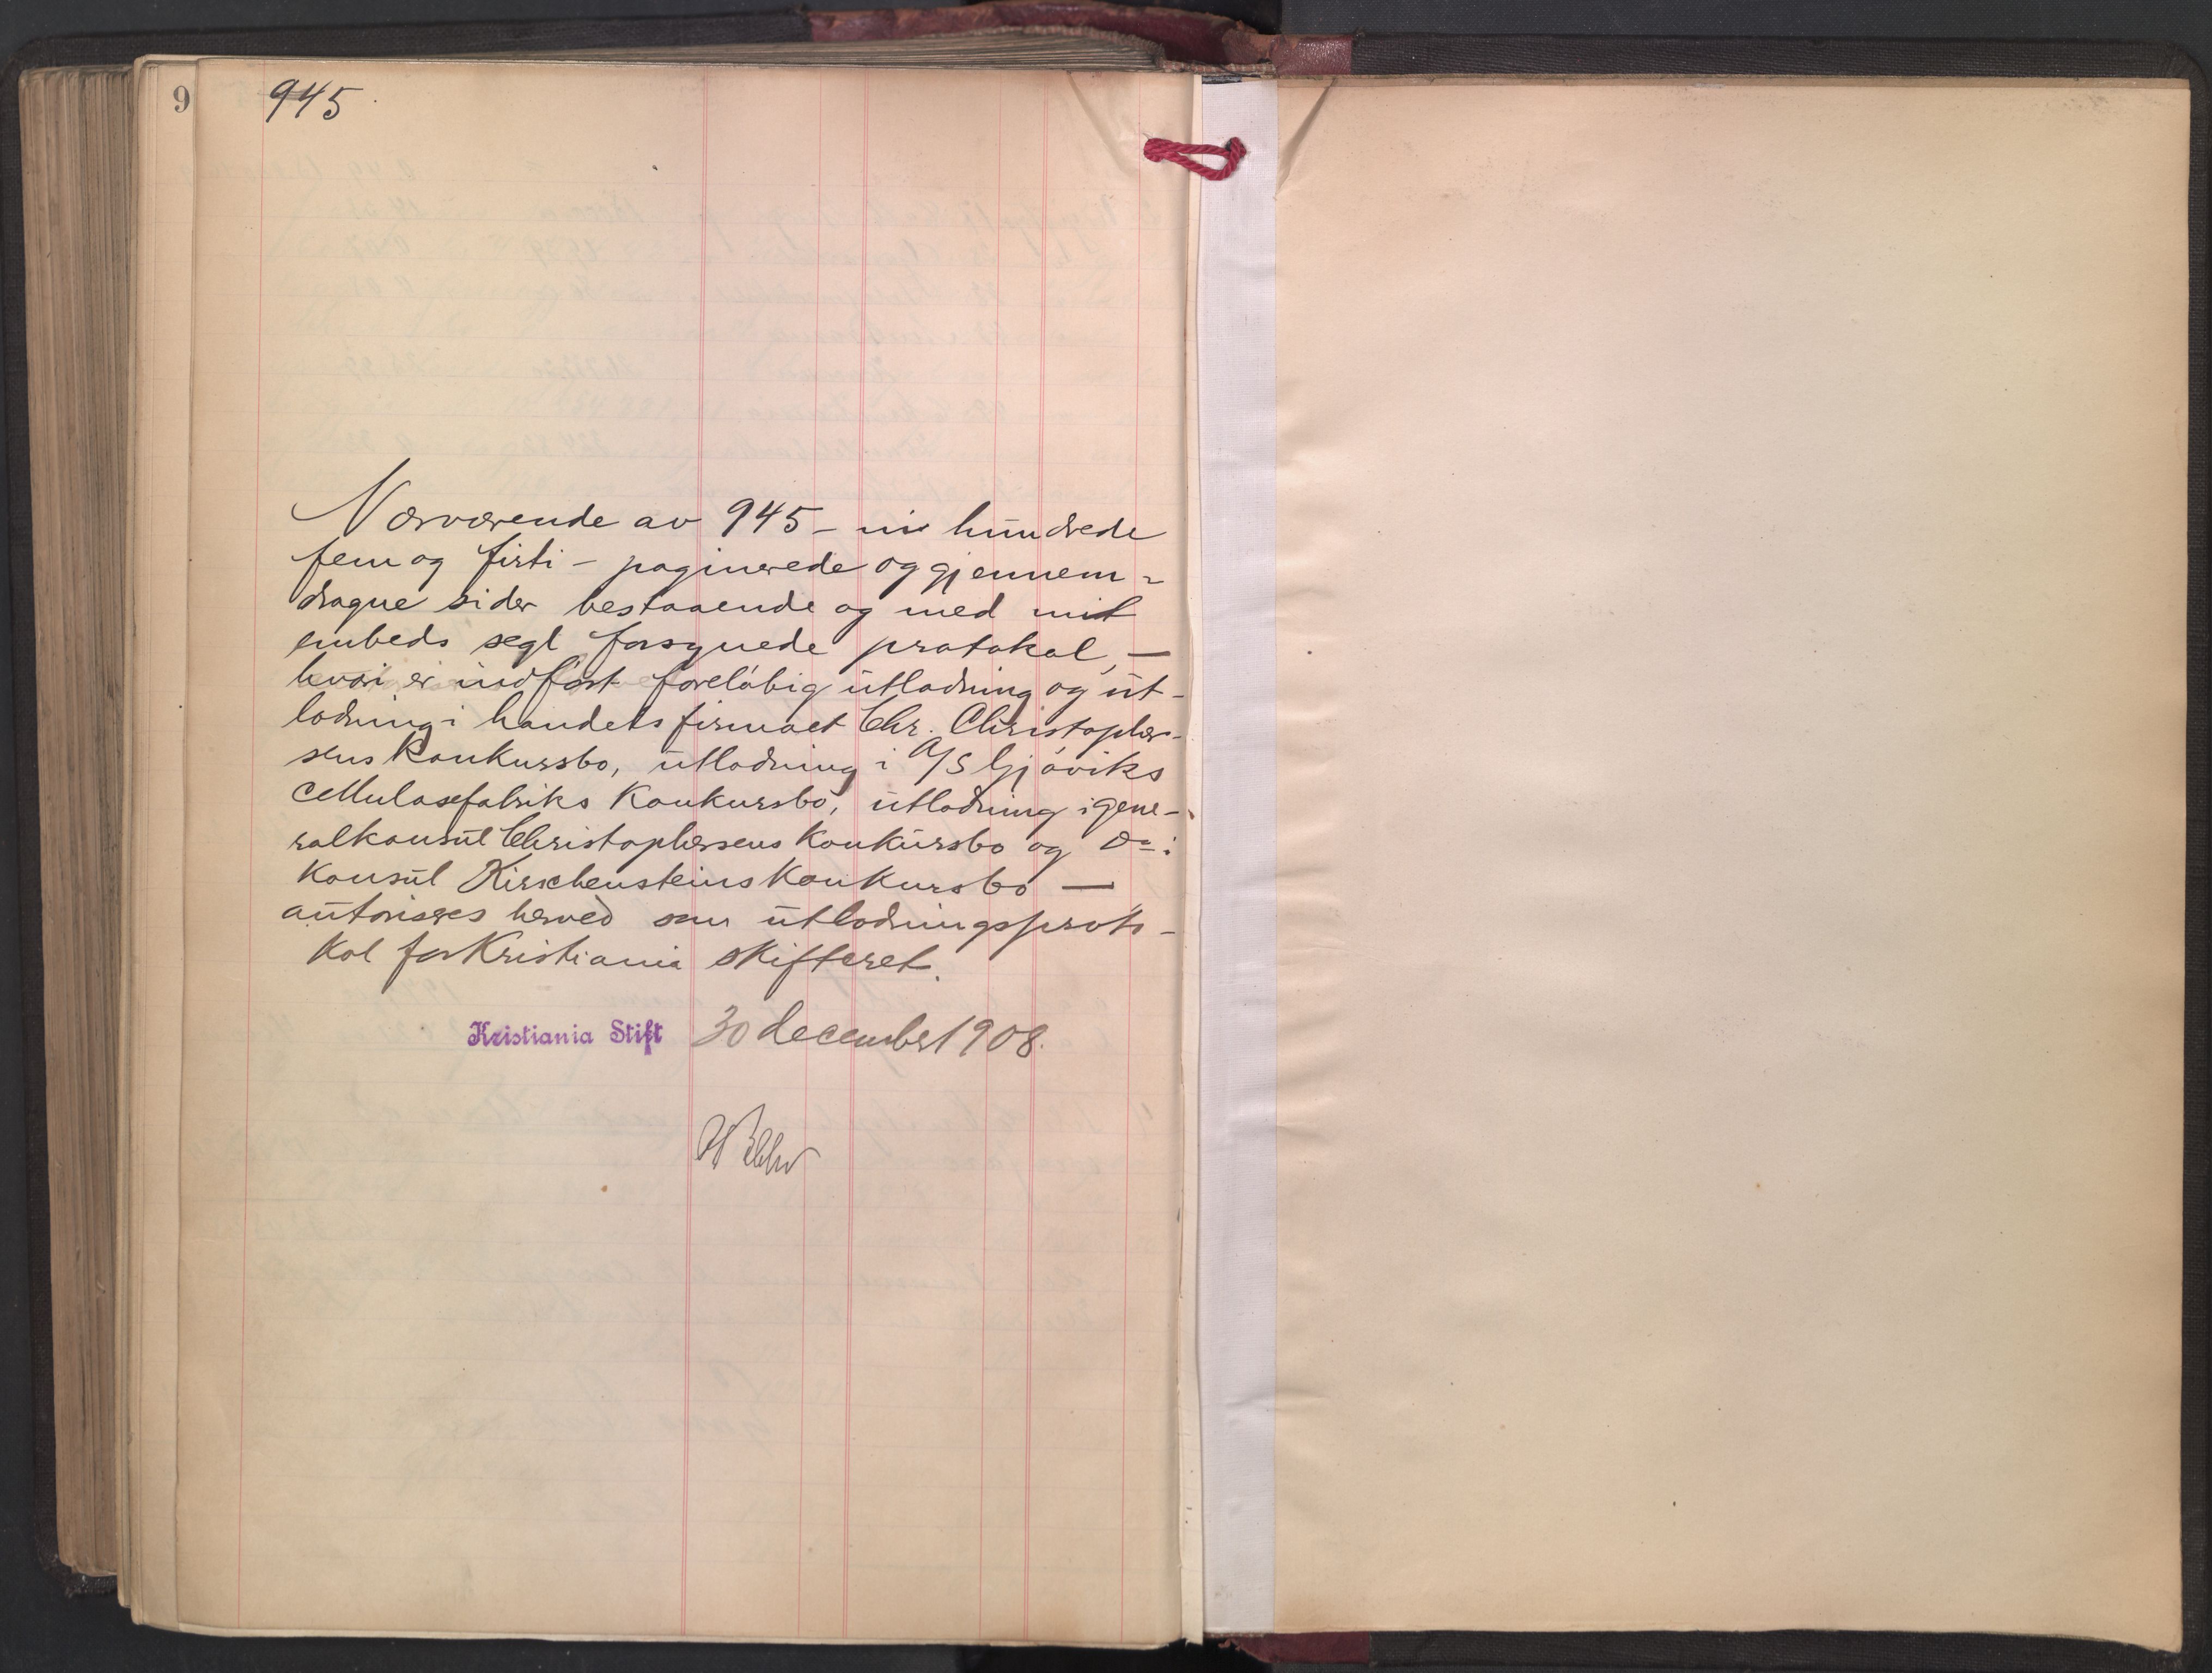 9
945
Nærværende av 945 – ni hundrede
fem og firti – paginerede og gjennem-
dragne sider bestaaende og med mit
embeds segl forsynede protokol, —
hvori er indført foreløbig utlodning og ut-
lodning i handelsfirmaet Chr. Christopher-
sens konkursbo, utlodning i A/S Gjøviks
cellulosefabriks konkursbo, utlodning i gene-
ralkonsul Christophersens konkursbo og Do i
konsul Kirschensteins konkursbo —
autoriseres herved som utlodningsproto-
kol for Kristiania skifteret.
Kristiania Stift 30 december 1908.